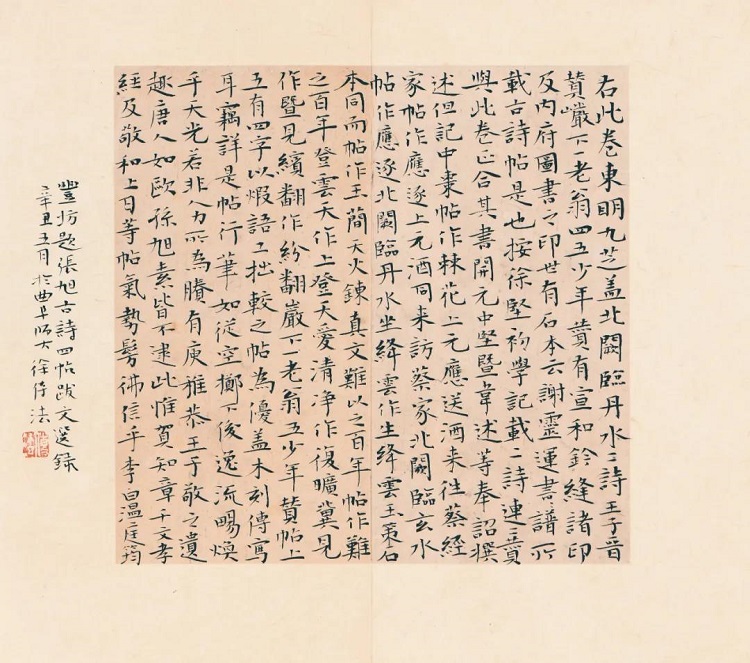 右此卷東明九芝盖北闕臨丹水二詩王子晉
贊巖下一老翁四五少年贊有宣和鈐縫諸印
及内府圖書之印世有石本云謝靈運書譜所
載古詩帖是也按徐堅初學記載二詩連二贊
與此卷正合其書開元中堅暨韋述等奉詔撰
述但記中棗帖作棘花上元應送酒来往蔡經
家帖作應逐上元酒同来訪蔡家北闕臨玄水
帖作應逐北闕臨丹水坐絳雲作生絳雲玉策石
本同而帖作玉蕳天火鍊真文難以之百年帖作難
之百年登雲天作上登天愛清净作復曠冀見
作暨見繽翻作紛翻巖下一老翁五少年贊帖上
五有四字以煅語工拙較之帖為優盖木刻傳寫
耳竊詳是帖行筆如從空擲下俊逸流暢焕
乎天光若非人力所為賸有庾雅恭王子敬之遺
趣唐人如歐徐旭素皆不逮此惟賀知章千文孝
經及敬和上日等帖氣勢髣彿信乎李白温庭筠
豐坊題張旭古詩四帖跋文選録
辛丑五月於曲阜師大徐法